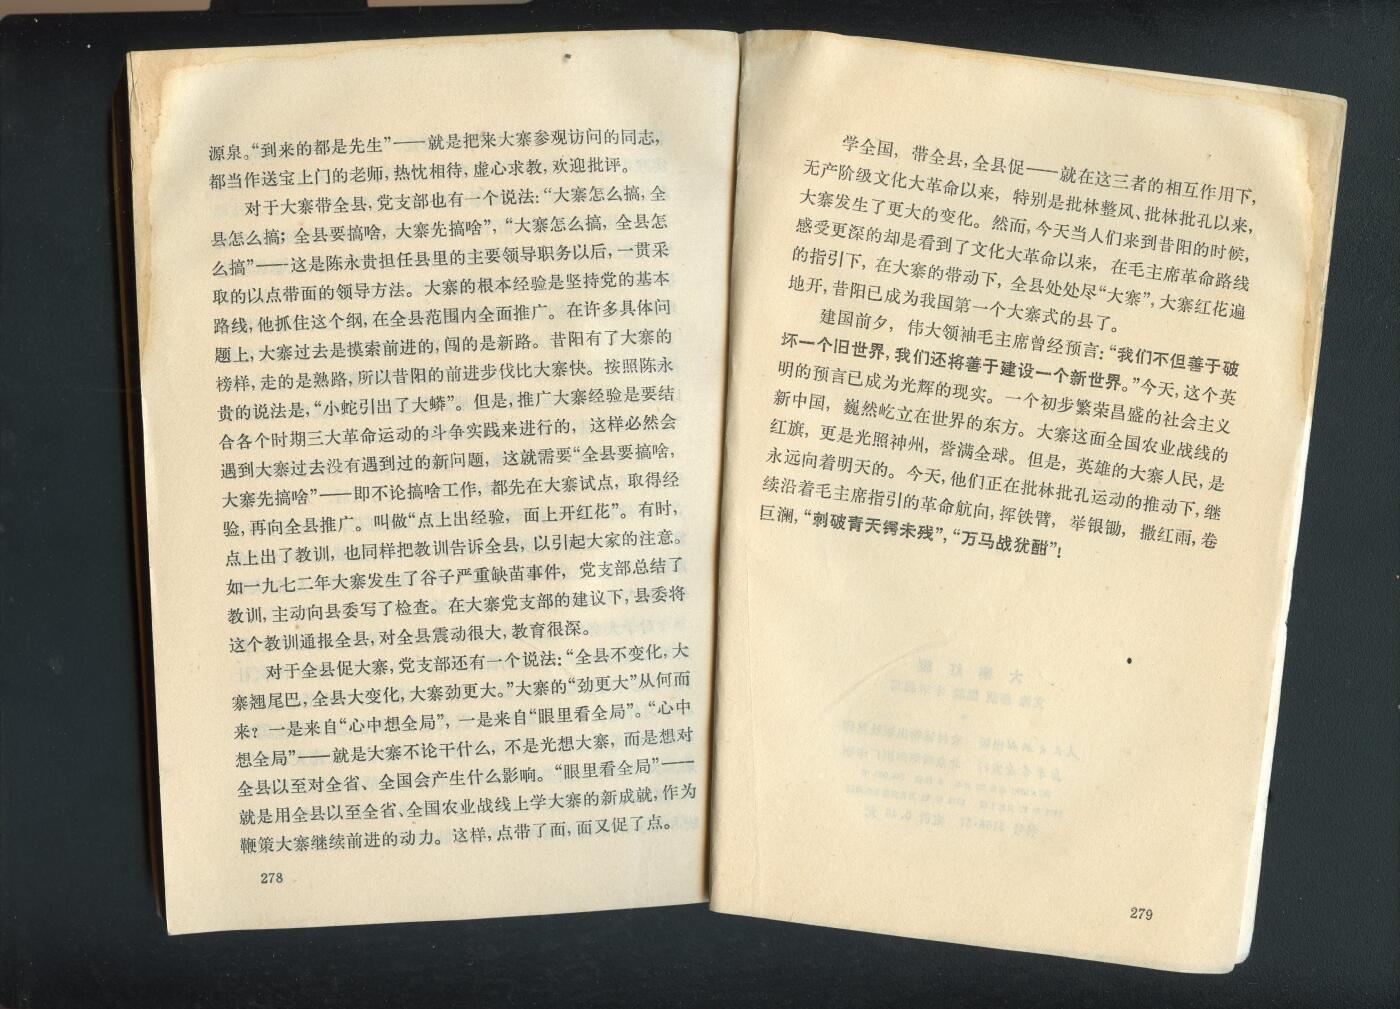 源泉。“到来的都是先生”——就是把来大寨参观访问的同志，
都当作送宝上门的老师，热忱相待，虚心求教，欢迎批评。
对于大寨带全县，党支部也有一个说法：“大寨怎么搞，全
县怎么搞；全县要搞啥，大寨先搞啥”，“大寨怎么搞，全县怎
么搞”——这是陈永贵担任县里的主要领导职务以后，一贯采
取的以点带面的领导方法。大寨的根本经验是坚持党的基本
路线，他抓住这个纲，在全县范围内全面推广。在许多具体问
题上，大寨过去是摸索前进的，闯的是新路。昔阳有了大寨的
榜样，走的是熟路，所以昔阳的前进步伐比大寨快。按照陈永
贵的说法是，“小蛇引出了大蟒”。但是，推广大寨经验是要结
合各个时期三大革命运动的斗争实践来进行的，这样必然会
遇到大寨过去没有遇到过的新问题，这就需要“全县要搞啥，
大寨先搞啥”——即不论搞啥工作，都先在大寨试点，取得经
验，再向全县推广。叫做“点上出经验，面上开红花”。有时，
点上出了教训，也同样把教训告诉全县，以引起大家的注意。
如一九七二年大寨发生了谷子严重缺苗事件，党支部总结了
教训，主动向县委写了检查。在大寨党支部的建议下，县委将
这个教训通报全县，对全县震动很大，教育很深。
对于全县促大寨，党支部还有一个说法：“全县不变化，大
寨翘尾巴，全县大变化，大寨劲更大。”大寨的“劲更大”从何而
来？一是来自“心中想全局”，一是来自“眼里看全局”。“心中
想全局”——就是大寨不论干什么，不是光想大寨，而是想对
全县以至对全省、全国会产生什么影响。“眼里看全局”——
就是用全县以至全省、全国农业战线上学大寨的新成就，作为
鞭策大寨继续前进的动力。这样，点带了面，面又促了点。
278
学全国，带全县，全县促——就在这三者的相互作用下，
无产阶级文化大革命以来，特别是批林整风、批林批孔以来，
大寨发生了更大的变化。然而，今天当人们来到昔阳的时候，
感受更深的却是看到了文化大革命以来，在毛主席革命路线
的指引下，在大寨的带动下，全县处处尽“大寨”，大寨红花遍
地开，昔阳已成为我国第一个大寨式的县了。
建国前夕，伟大领袖毛主席曾经预言：“我们不但善于破
坏一个旧世界，我们还将善于建设一个新世界。”今天，这个英
明的预言已成为光辉的现实。一个初步繁荣昌盛的社会主义
新中国，巍然屹立在世界的东方。大寨这面全国农业战线的
红旗，更是光照神州，誉满全球。但是，英雄的大寨人民，是
永远向着明天的。今天，他们正在批林批孔运动的推动下，继
续沿着毛主席指引的革命航向，挥铁臂，举银锄，撒红雨，卷
巨澜，“刺破青天锷未残”，“万马战犹酣”！
279